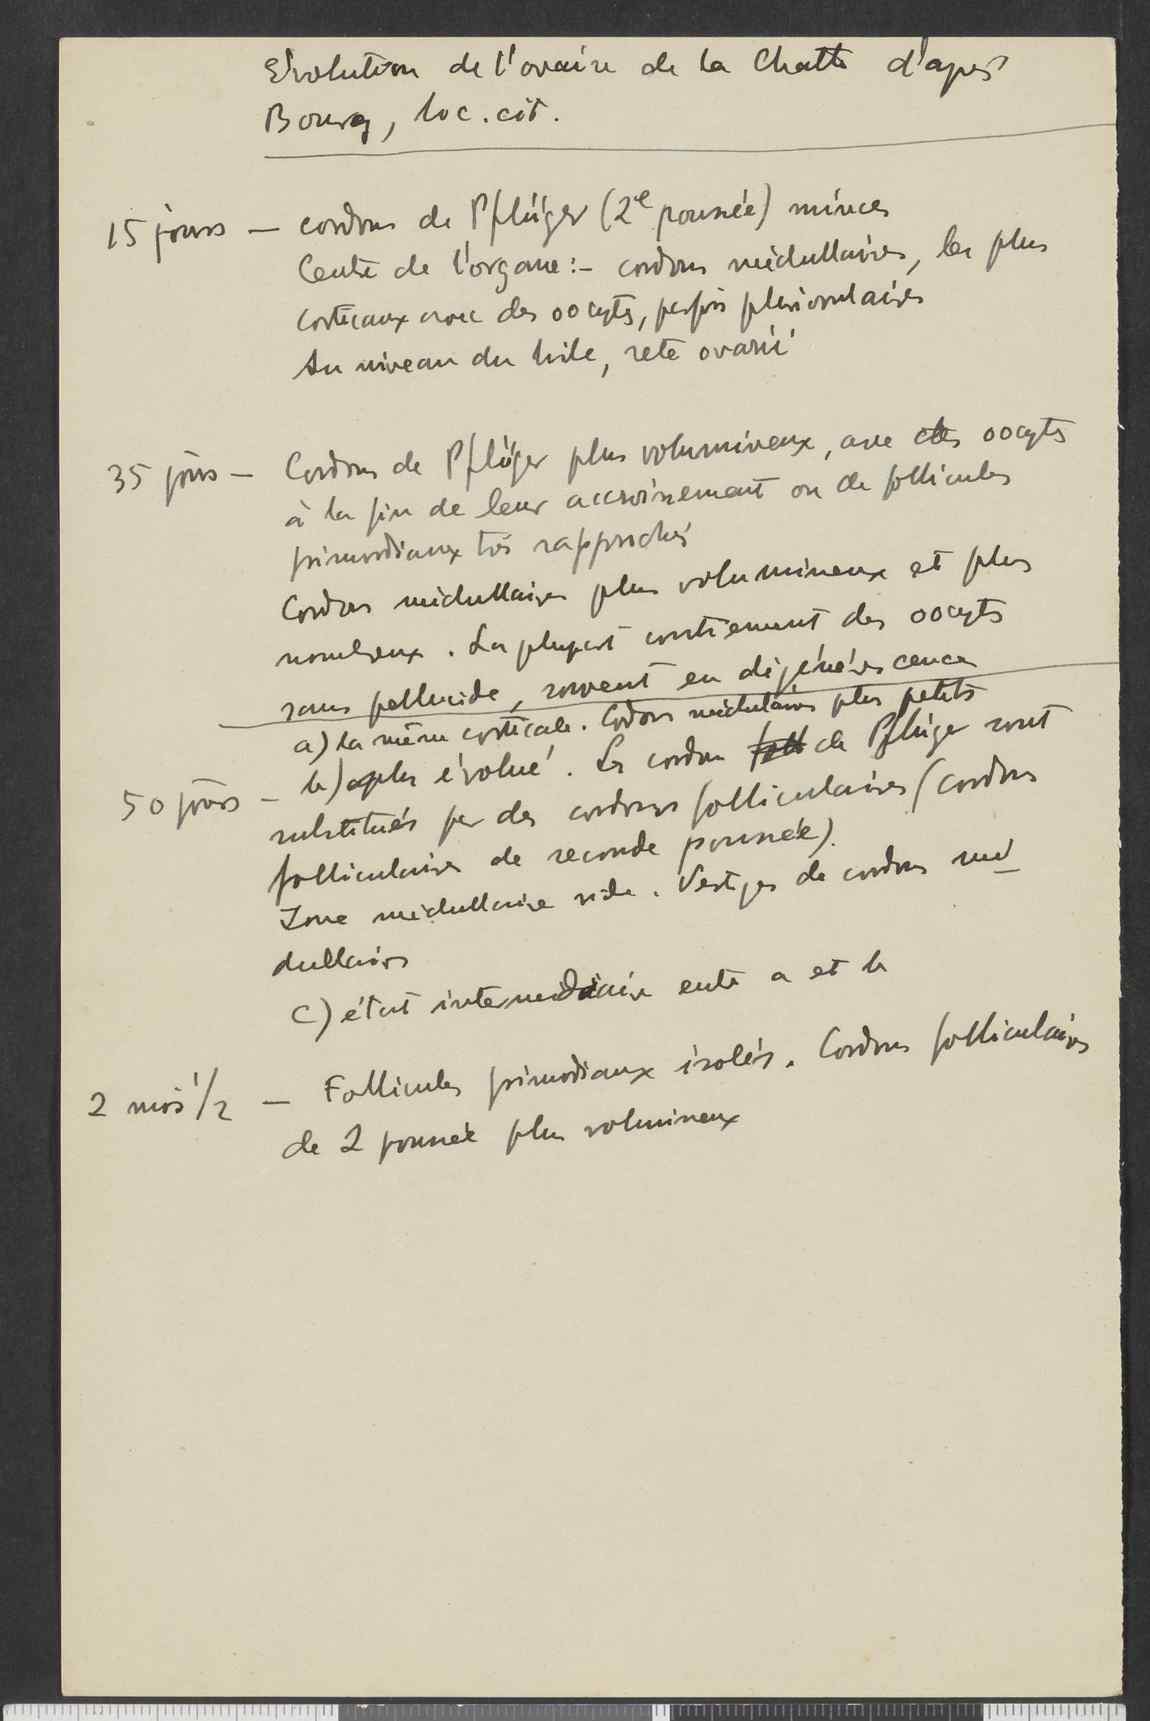 Evolution de l'ovaire de la Chatte d'après
Bourg, loc. cit.
15 jours — cordons de Pflüger (2e poussée) minces
Centre de l'organe :- cordons médullaires, les plus
corticaux avec des oocytes, parfois pluriovulaires
Au niveau du hile, rete ovarii
35 jours — Cordons de Pflüger plus volumineux, avec des oocytes
à la fin de leur accroissement ou de follicules
primordiaux très rapprochés
Cordons médullaires plus volumineux et plus
nombreux. La plupart contiennent des oocytes
sans pellucide, souvent en dégénérescence
a) la même corticale. Cordons médullaires plus petits
50 jours — b) plus évolué. Les cordons de Pflüger sont
substitués par des cordons folliculaires (cordons
folliculaires de seconde poussée).
Zone médullaire vide. Vestiges de cordons mé-
dullaires
c) état intermédiaire entre a et b
2 mois 1/2 — Follicules primordiaux isolés. Cordons folliculaires
de 2 poussée plus volumineux